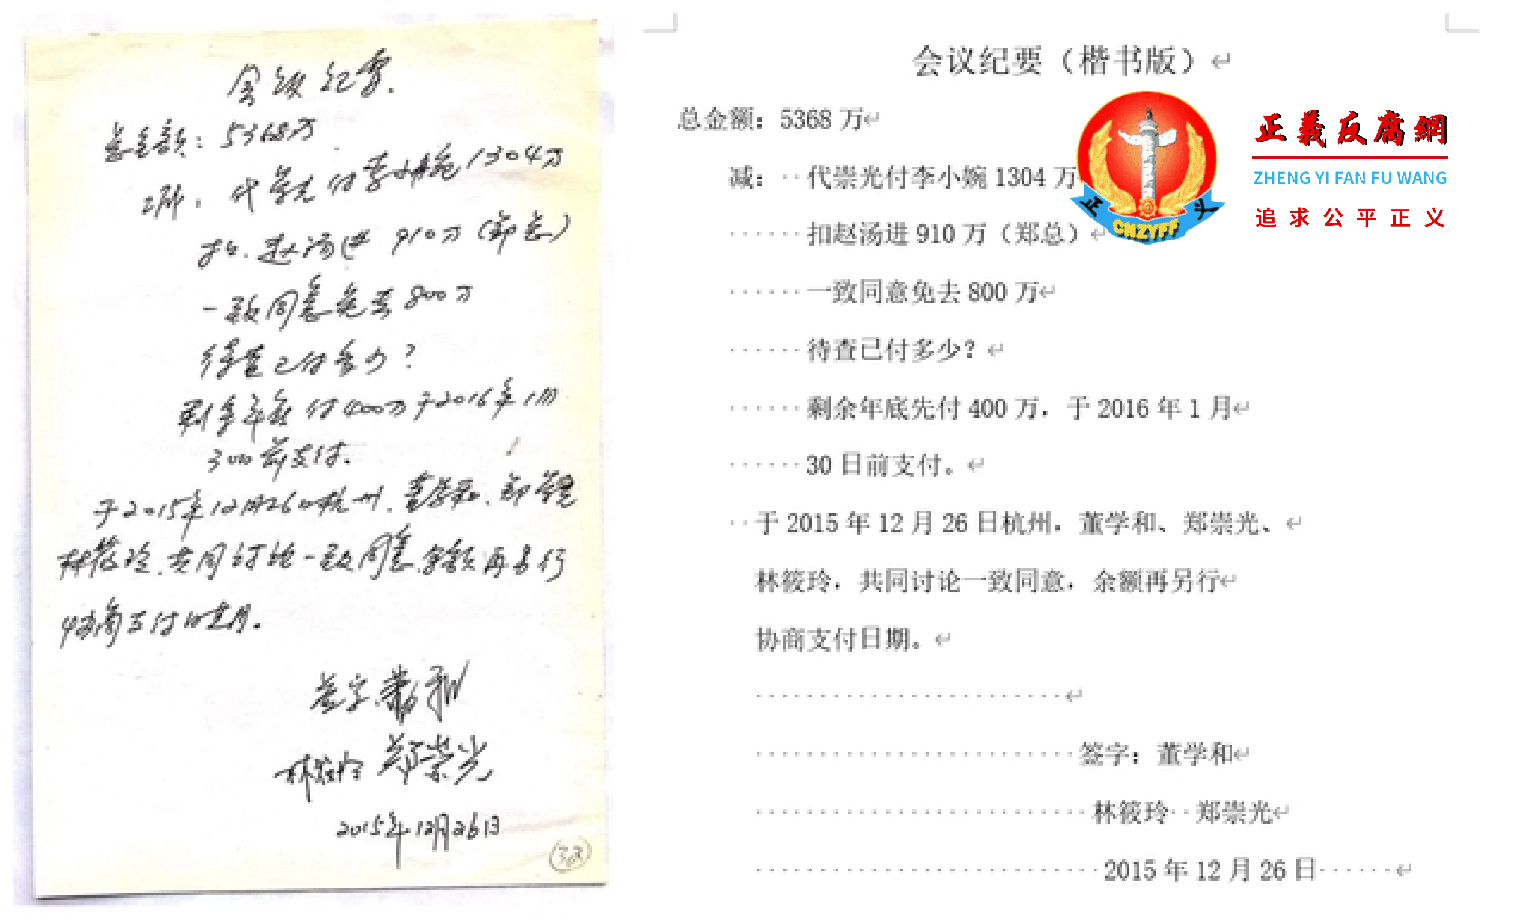 会议纪要.
总金额：5368万
减：代崇光付李小婉1304万
扣.赵汤进 910万（郑总）
一致同意免去800万
待查已付多少？
剩余年底付400万于2016年1月
30日前支付.
于2015年12月26日杭州.董学和.郑崇光
林筱玲.共同讨论一致同意.余额再另行
协商支付日期.
签字:董学和
林筱玲 郑崇光
2015年12月26日
会议纪要（楷书版）
总金额：5368 万
减： 代崇光付李小婉 1304 万
扣赵汤进 910 万（郑总）
一致同意免去 800 万
待查已付多少？
剩余年底先付 400 万，于 2016 年 1 月
30 日前支付。
于 2015 年 12 月 26 日杭州，董学和、郑崇光、
林筱玲，共同讨论一致同意，余额再另行
协商支付日期。
签字：董学和
林筱玲 郑崇光
2015 年 12 月 26 日
正 义
CNZYFF
正義反腐網
ZHENG YI FAN FU WANG
追求公平正义